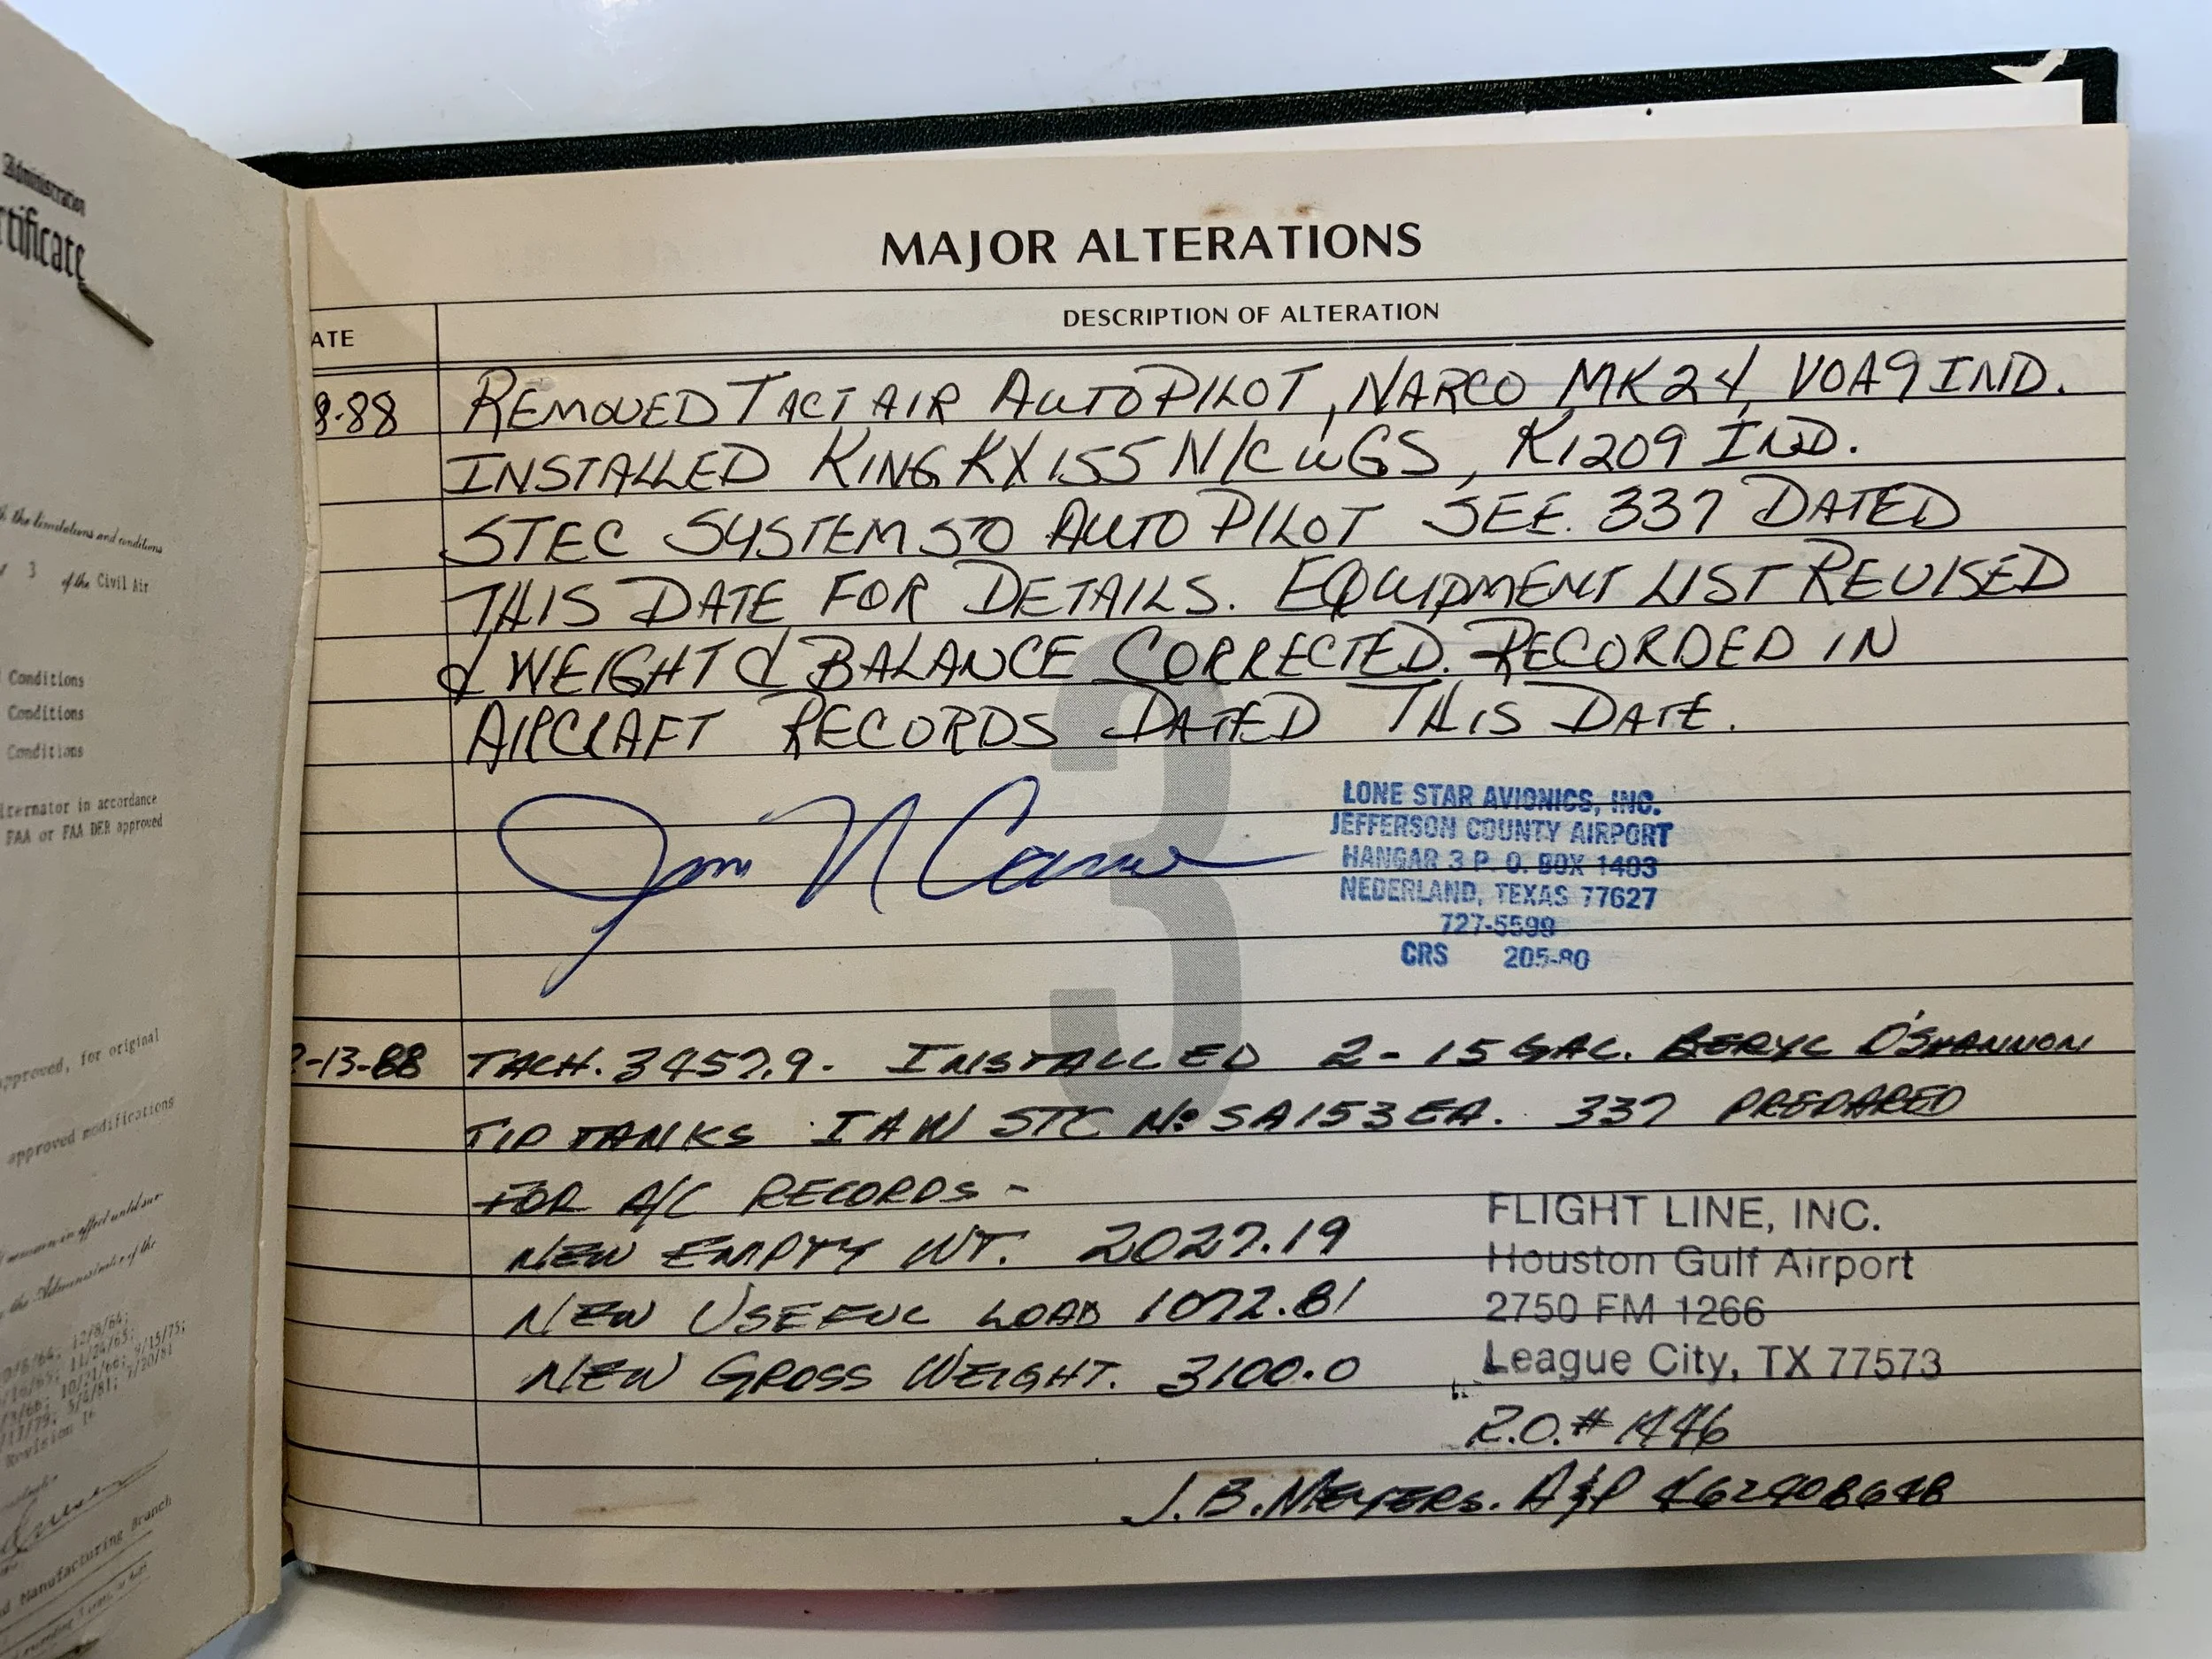 Administration
rtificate
h the limitations and conditions
3 of the Civil Air
Conditions
Conditions
Conditions
lternator in accordance
FAA or FAA DER approved
approved, for original
approved modifications
the Administrator of the
Revision 16
d Manufacturing Branch
MAJOR ALTERATIONS
ATE DESCRIPTION OF ALTERATION
8-88 REMOVED TACTAIR AUTOPILOT, NARCO MK24, VOA9 IND.
INSTALLED KING KX155 N/C W GS, KI209 IND.
STEC SYSTEM 50 AUTO PILOT SEE. 337 DATED
THIS DATE FOR DETAILS. EQUIPMENT LIST REVISED
& WEIGHT & BALANCE CORRECTED. RECORDED IN
AIRCRAFT RECORDS DATED THIS DATE.
3
LONE STAR AVIONICS, INC.
JEFFERSON COUNTY AIRPORT
HANGAR 3 P. O. BOX 1403
NEDERLAND, TEXAS 77627
727-5599
CRS 205-80
-13-88 TACH. 3457.9. INSTALLED 2-15 GAL. BERYL D'SHANNON
TIP TANKS IAW STC No SA153EA. 337 PREPARED
FOR A/C RECORDS -
NEW EMPTY WT. 2027.19
NEW USEFUL LOAD 1072.81
NEW GROSS WEIGHT. 3100.0
FLIGHT LINE, INC.
Houston Gulf Airport
2750 FM 1266
League City, TX 77573
R.O. # 1446
J.B. MEYERS. A&P 462908648